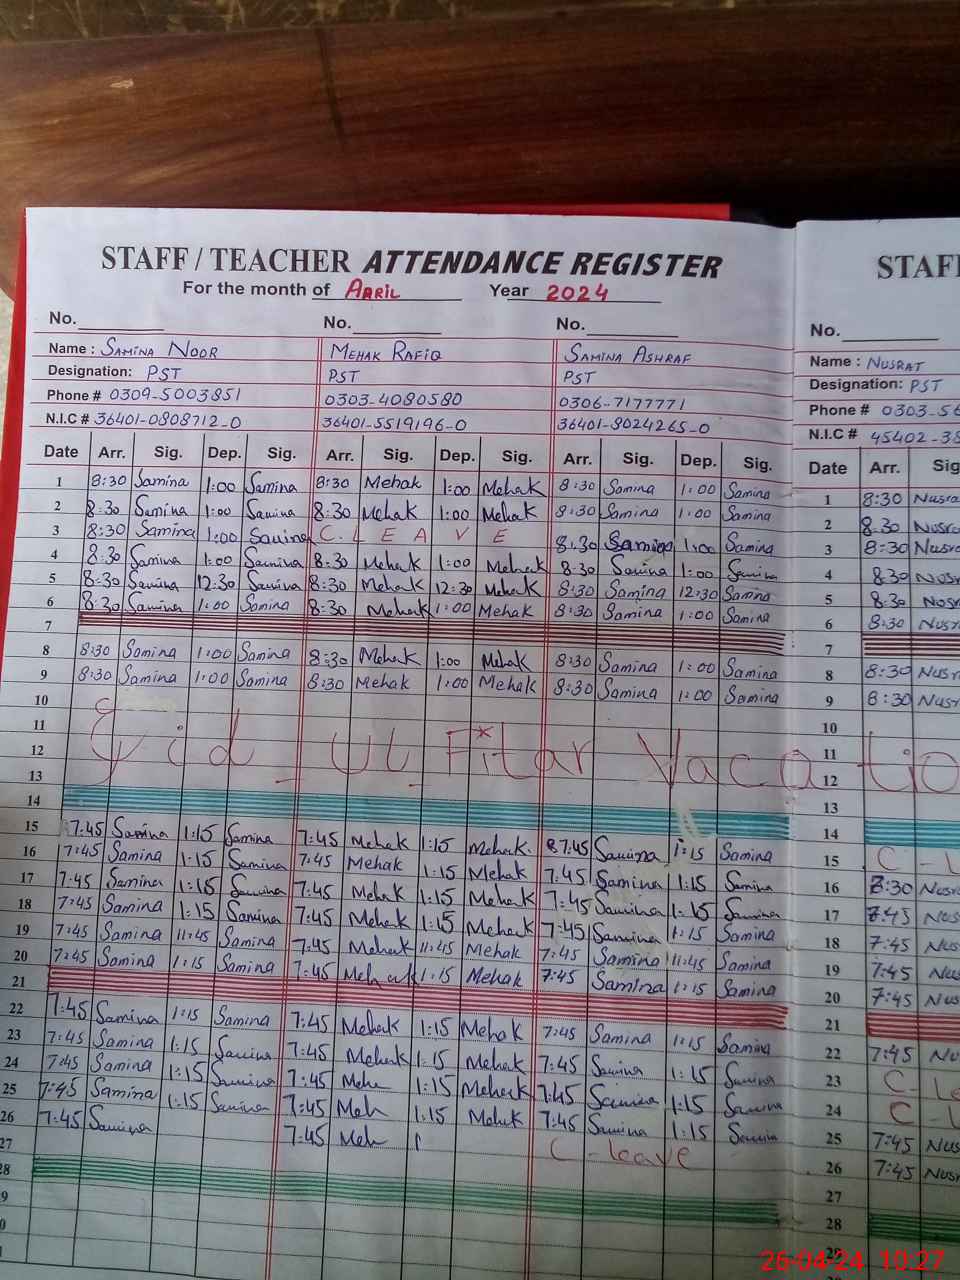 STAFF / TEACHER ATTENDANCE REGISTER STAFF
For the month of APRIL Year 2024
No. No. No. No.
Name : SAMINA NOOR MEHAK RAFIQ SAMINA ASHRAF Name : NUSRAT
Designation: PST PST PST Designation: PST
Phone # 0309-5003851 0303-4080580 0306-7177771 Phone # 0303-56
N.I.C # 36401-0808712-0 36401-5519196-0 36401-8024265-0 N.I.C # 45402-38
Date Arr. Sig. Dep. Sig. Arr. Sig. Dep. Sig. Arr. Sig. Dep. Sig. Date Arr. Sig
1 8:30 Samina 1:00 Samina 8:30 Mehak 1:00 Mehak 8:30 Samina 1:00 Samina 1 8:30 Nusra
2 8:30 Samina 1:00 Samina 8:30 Mehak 1:00 Mehak 8:30 Samina 1:00 Samina 2 8:30 Nusra
3 8:30 Samina 1:00 Samina C. L E A V E 8:30 Samina 1:00 Samina 3 8:30 Nusra
4 8:30 Samina 1:00 Samina 8:30 Mehak 1:00 Mehak 8:30 Samina 1:00 Samina 4 8:30 Nusra
5 8:30 Samina 12:30 Samina 8:30 Mehak 12:30 Mehak 8:30 Samina 12:30 Samina 5 8:30 Nusra
6 8:30 Samina 1:00 Samina 8:30 Mehak 1:00 Mehak 8:30 Samina 1:00 Samina 6 8:30 Nusra
7 7
8 8:30 Samina 1:00 Samina 8:30 Mehak 1:00 Mehak 8:30 Samina 1:00 Samina 8 8:30 Nusra
9 8:30 Samina 1:00 Samina 8:30 Mehak 1:00 Mehak 8:30 Samina 1:00 Samina 9 8:30 Nusra
10 10
11 11
12 Eid - Ul Fitar Vacatio 12
13 13
14 14
15 7:45 Samina 1:15 Samina 7:45 Mehak 1:15 Mehak 7:45 Samina 1:15 Samina 15 C - L
16 7:45 Samina 1:15 Samina 7:45 Mehak 1:15 Mehak 7:45 Samina 1:15 Samina 16 8:30 Nusra
17 7:45 Samina 1:15 Samina 7:45 Mehak 1:15 Mehak 7:45 Samina 1:15 Samina 17 7:45 Nus
18 7:45 Samina 1:15 Samina 7:45 Mehak 1:15 Mehak 7:45 Samina 1:15 Samina 18 7:45 Nus
19 7:45 Samina 11:45 Samina 7:45 Mehak 11:45 Mehak 7:45 Samina 11:45 Samina 19 7:45 Nus
20 7:45 Samina 1:15 Samina 7:45 Mehak 1:15 Mehak 7:45 Samina 1:15 Samina 20 7:45 Nus
21 21
22 7:45 Samina 1:15 Samina 7:45 Mehak 1:15 Mehak 7:45 Samina 1:15 Samina 22 7:45 Nu
23 7:45 Samina 1:15 Samina 7:45 Mehak 1:15 Mehak 7:45 Samina 1:15 Samina 23 C - Le
24 7:45 Samina 1:15 Samina 7:45 Meh 1:15 Mehak 7:45 Samina 1:15 Samina 24 C - L
25 7:45 Samina 1:15 Samina 7:45 Meh 1:15 Mehak 7:45 Samina 1:15 Samina 25 7:45 Nus
26 7:45 Samina 7:45 Meh C - leave 26 7:45 Nusr
27 27
28 28
9 29
0
26-04-24 10:27